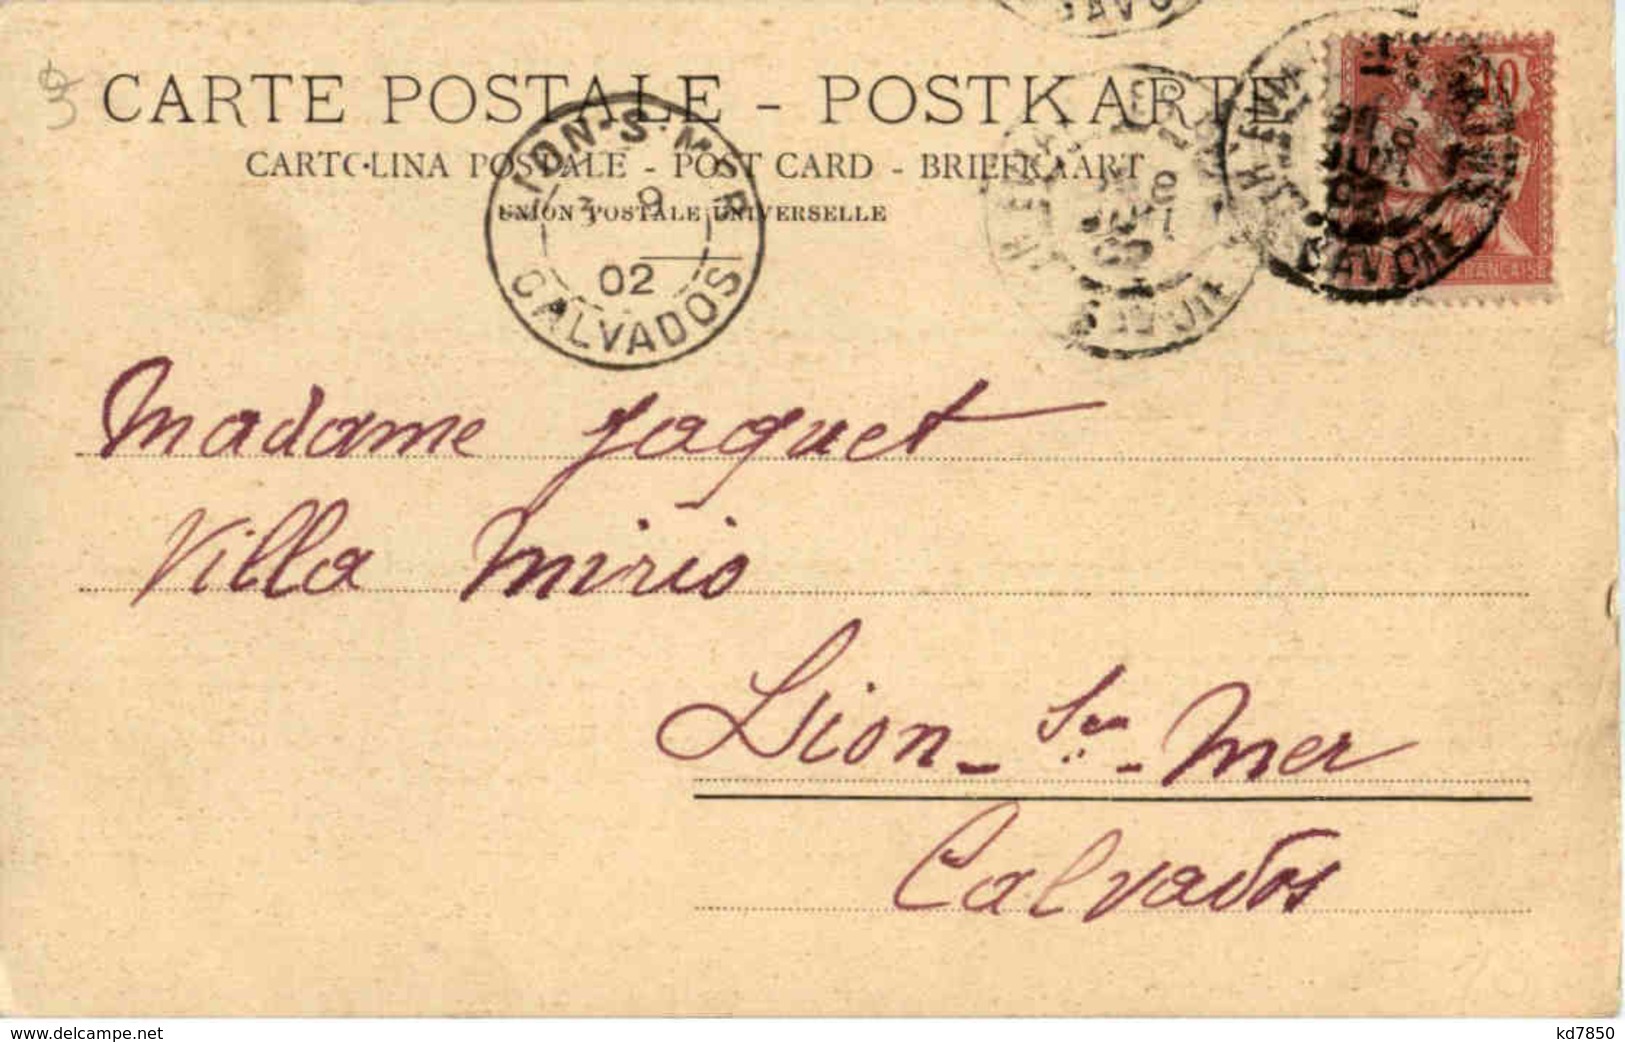 CARTE POSTALE - POSTKARTE
CARTOLINA POSTALE - POST CARD - BRIEFKAART
UNION POSTALE UNIVERSELLE
LION-S-MER
3 9
02
CALVADOS
10
SAVOIE
FRANÇAISE
Madame Jaquet
Villa Mirio
Lion-Sur-Mer
Calvados
www.delcampe.net
kd7850